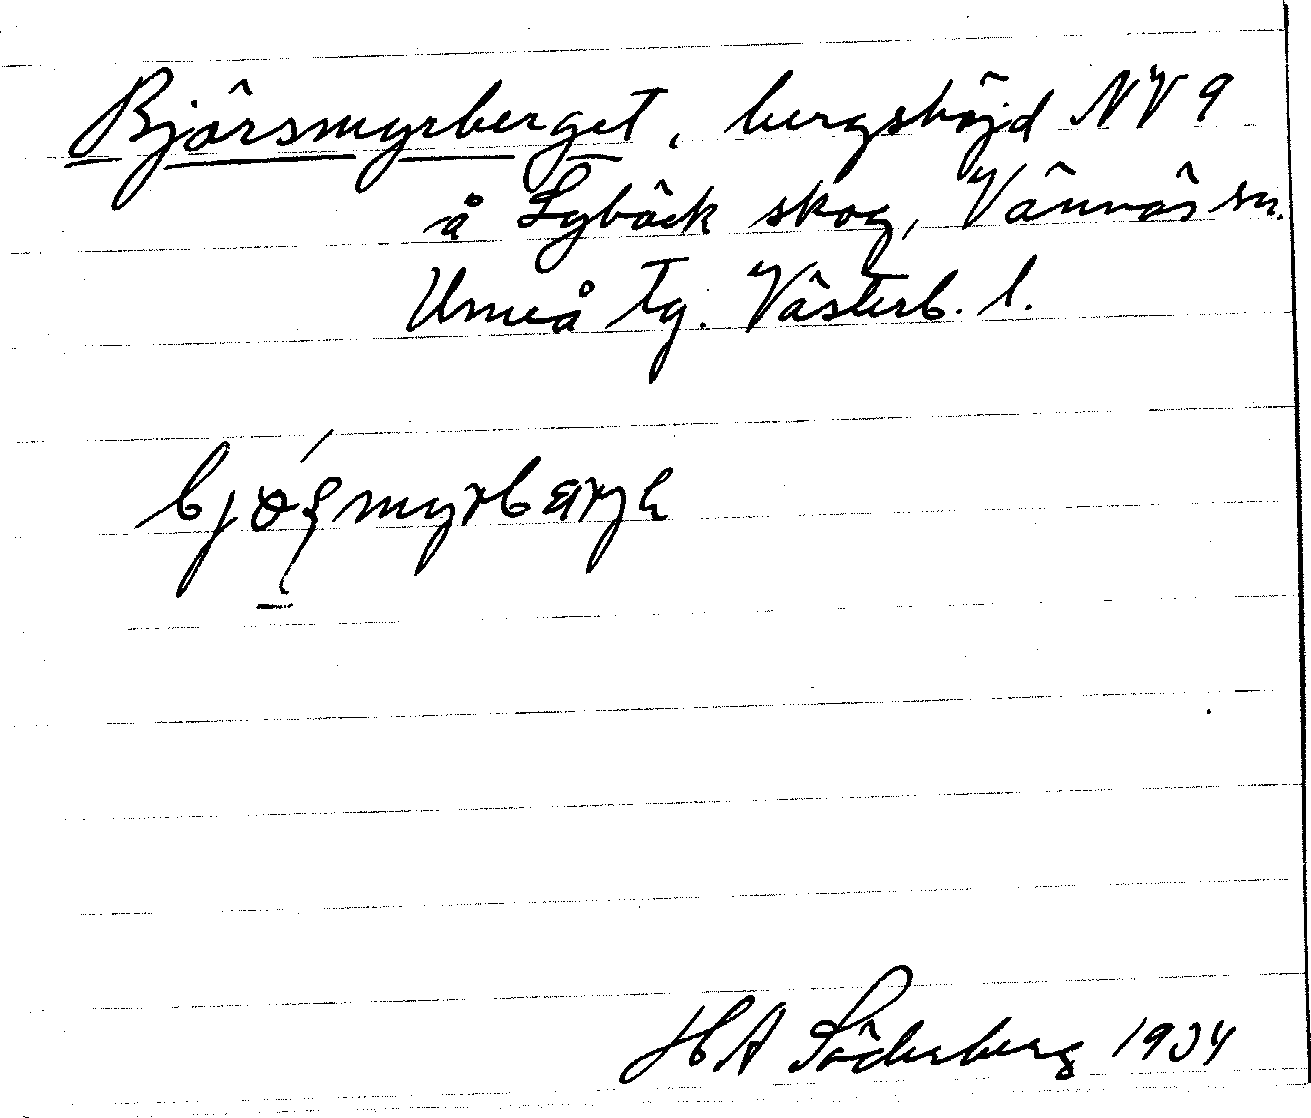 Björsmyrberget, bergshöjd NV 9
å Lybäck skog, Vännäs sn.
Umeå tg. Västerb. l.
HA Söderberg 1934